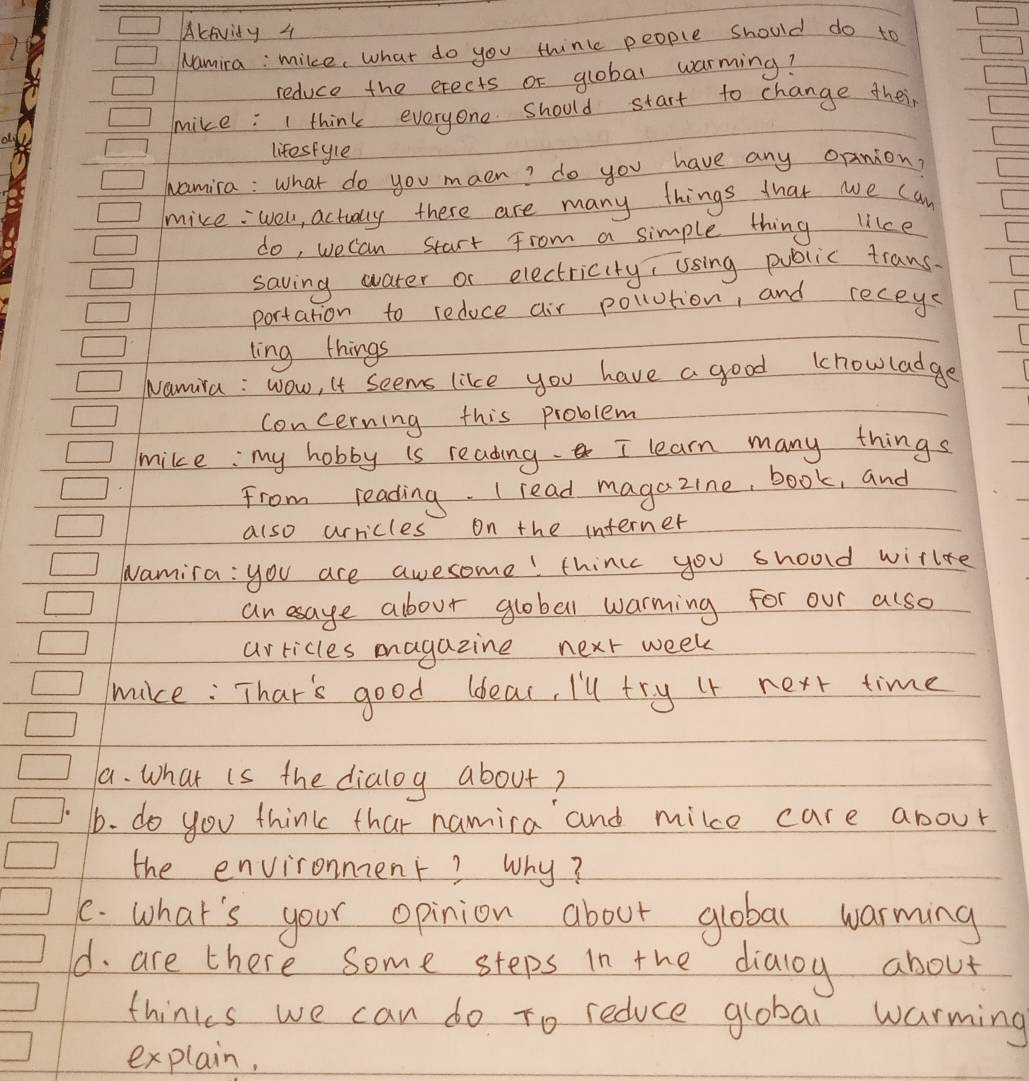 Aktivity 4
Namira : mike, what do you think people should do to
reduce the erects of global warming?
mike : I think everyone should start to change their
lifestyle
Namira : what do you maen? do you have any opinion?
mike : well, actually there are many things that we can
do, we can start from a simple thing like
saving water or electricity, using public trans-
portation to reduce air pollution, and receyc
ling things
Namira : wow, it seems like you have a good knowladge
concerning this problem
mike : my hobby is reading. I learn many things
from reading. I read magazine, book, and
also articles on the internet
Namira : you are awesome! think you should wirlte
an esaye about global warming for our also
articles magazine next week
mike : That's good idear, I'll try it next time
a. what is the dialog about?
b. do you think that namira and mike care about
the environment? Why?
c. what's your opinion about global warming
d. are there some steps in the dialog about
thinks we can do to reduce global warming
explain.